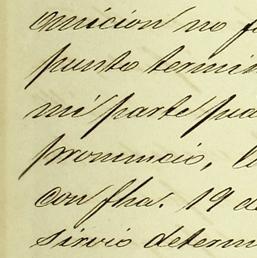 omicion no f
punto termin
mi parte pue
pronuncio, l
con fha. 19 d
sirvio determ